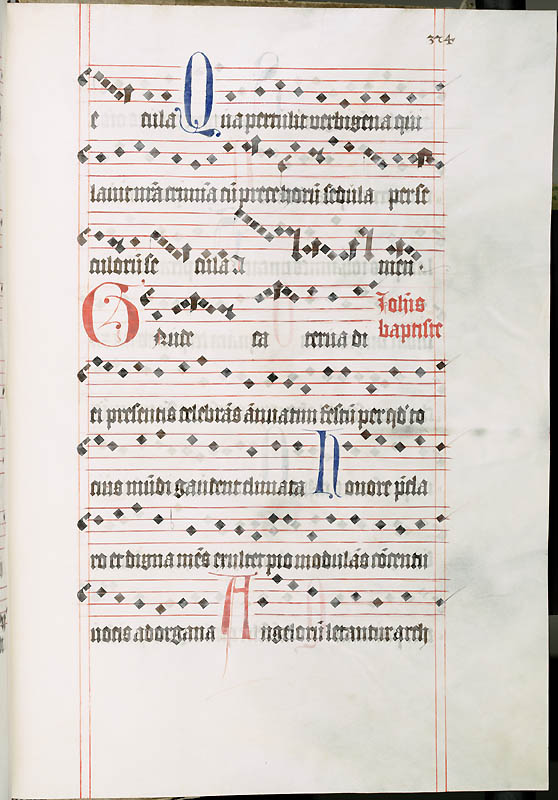 324
e cula Qua pertulit verbigena qui
lavit nr̄a crimīa cū prece horū sedula per se
culorū se cula A men.
Gaude ca terua di Joh̄is
baptiste
ei presentis celebrās ānuatim festū per qd' to
cius mūdi gaudent climata Honore p̄cla
ro et digna mēs exultet pio modulās cōcentu
notis ad organa Angelorū letantur arch